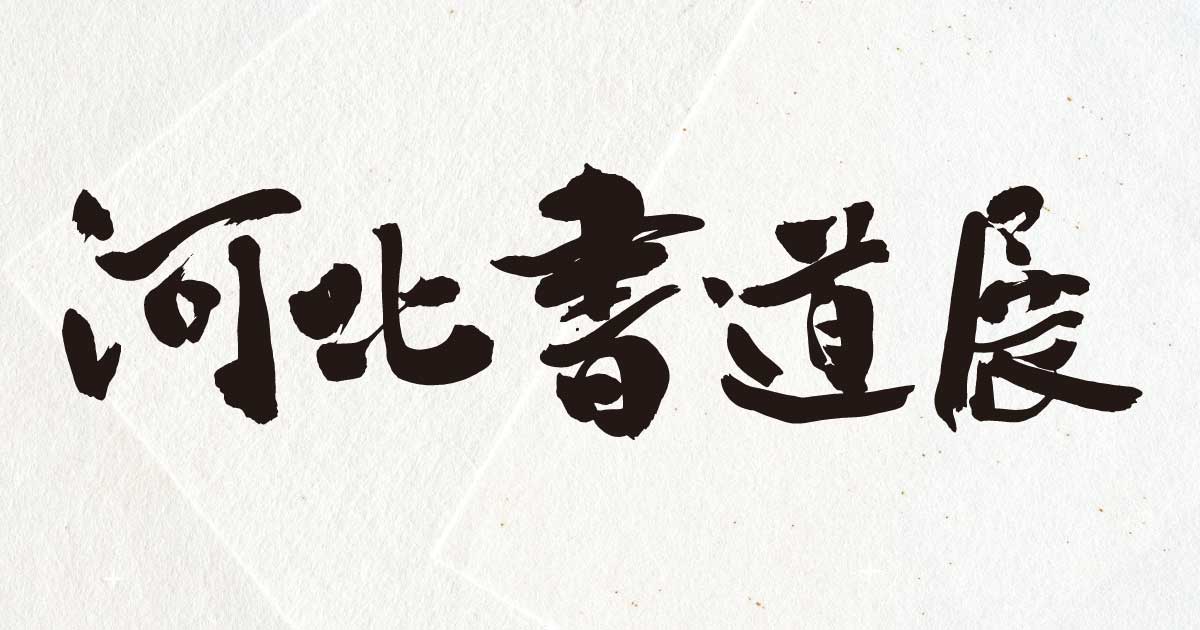 河北書道展